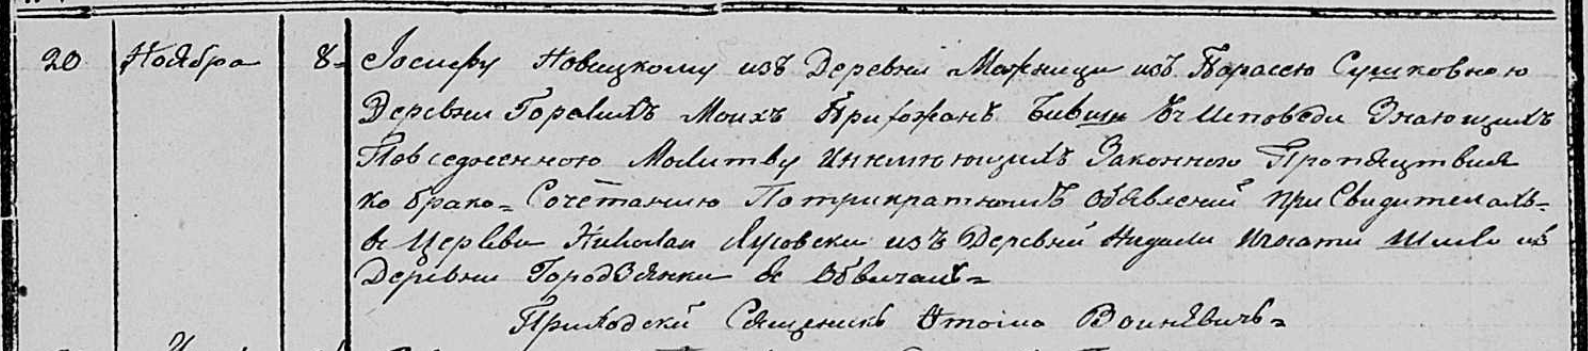 20 Ноября 8 Іосифу Новицкому изъ Деревни Можници изъ Парасею Сушковною
Деревни Горелихъ Моихъ Прихожанъ Бивши въ Исповеди Знающихъ
Повседневною Молитву Инеимеющихъ Законного Препядствия
ко брако= Сочетанию Потрикратномъ Обявлений при Свидителахъ=
в Церкви Николаи Лусовски изъ Деревни Нидали Игнати из
Деревни Городзянки Обвичалъ=
Приходский Священикъ Антоіно Воиневичъ=